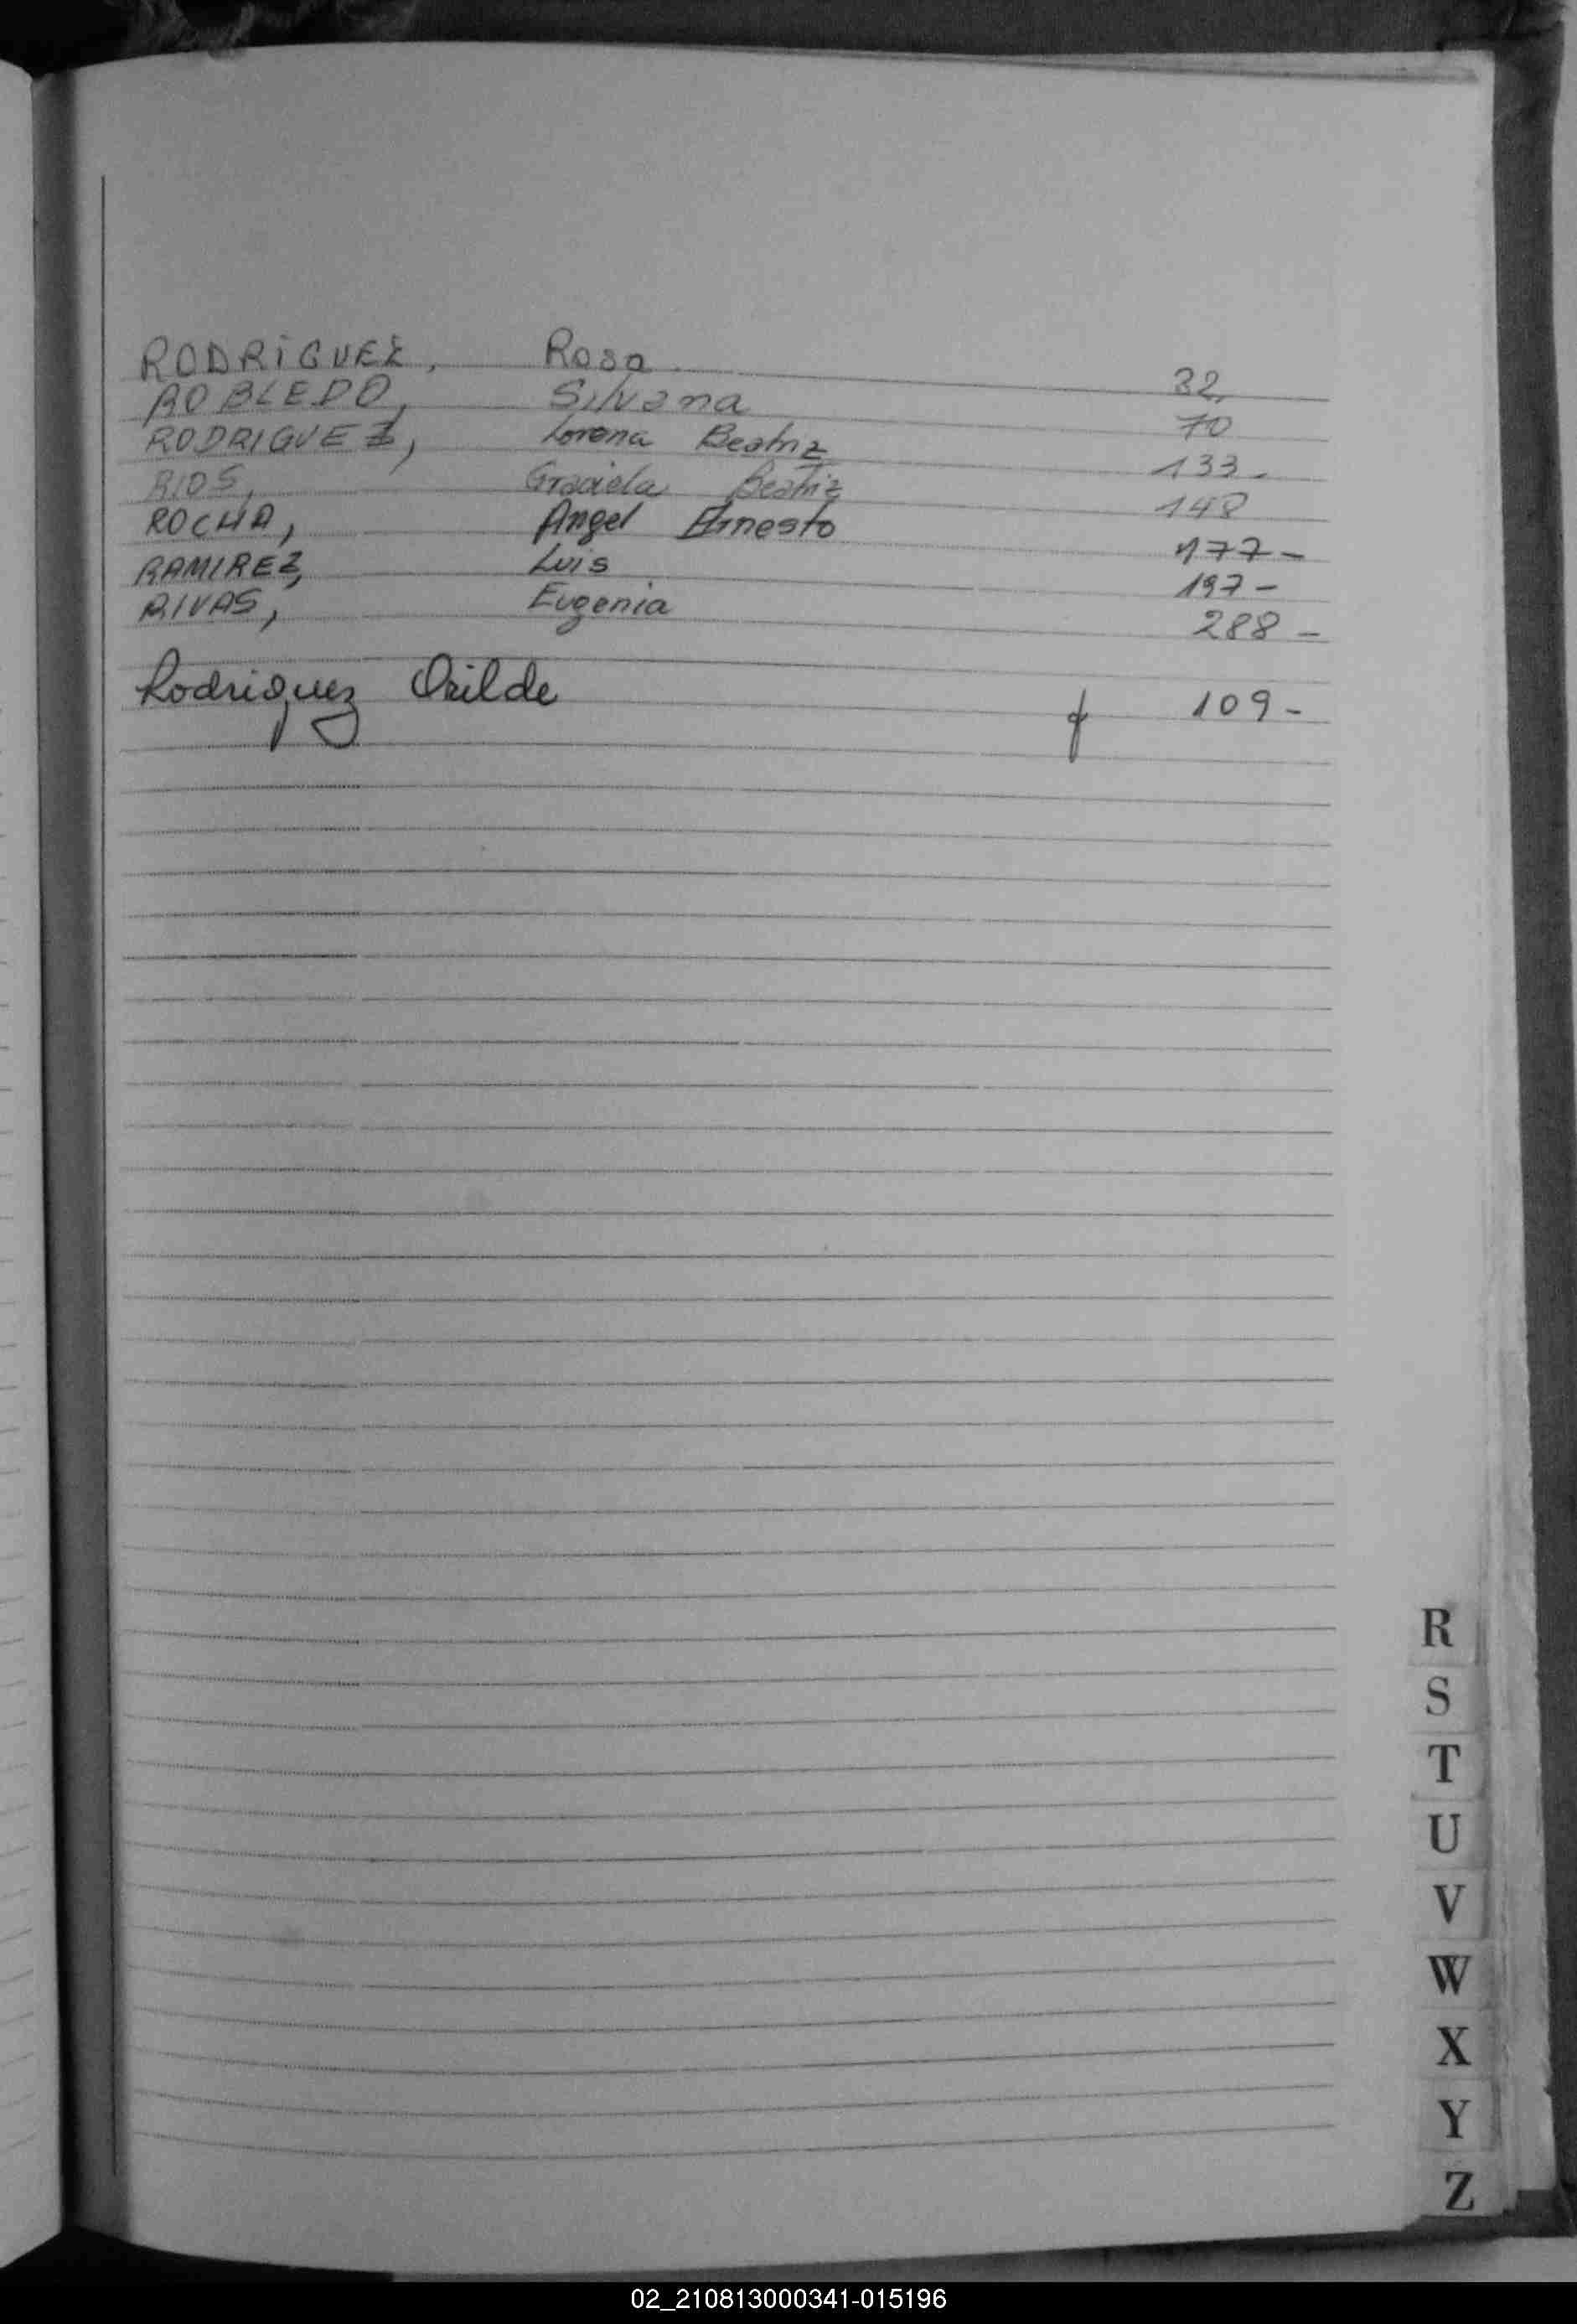 RODRIGUEZ, Rosa 32
ROBLEDO, Silvana 70
RODRIGUEZ, Lorena Beatriz 133-
RIOS, Graciela Beatriz 148
ROCHA, Angel Ernesto 177-
RAMIREZ, Luis 197-
RIVAS, Eugenia 288-
Rodriguez f 109-
R
S
T
U
V
W
X
Y
Z
02_210813000341-015196